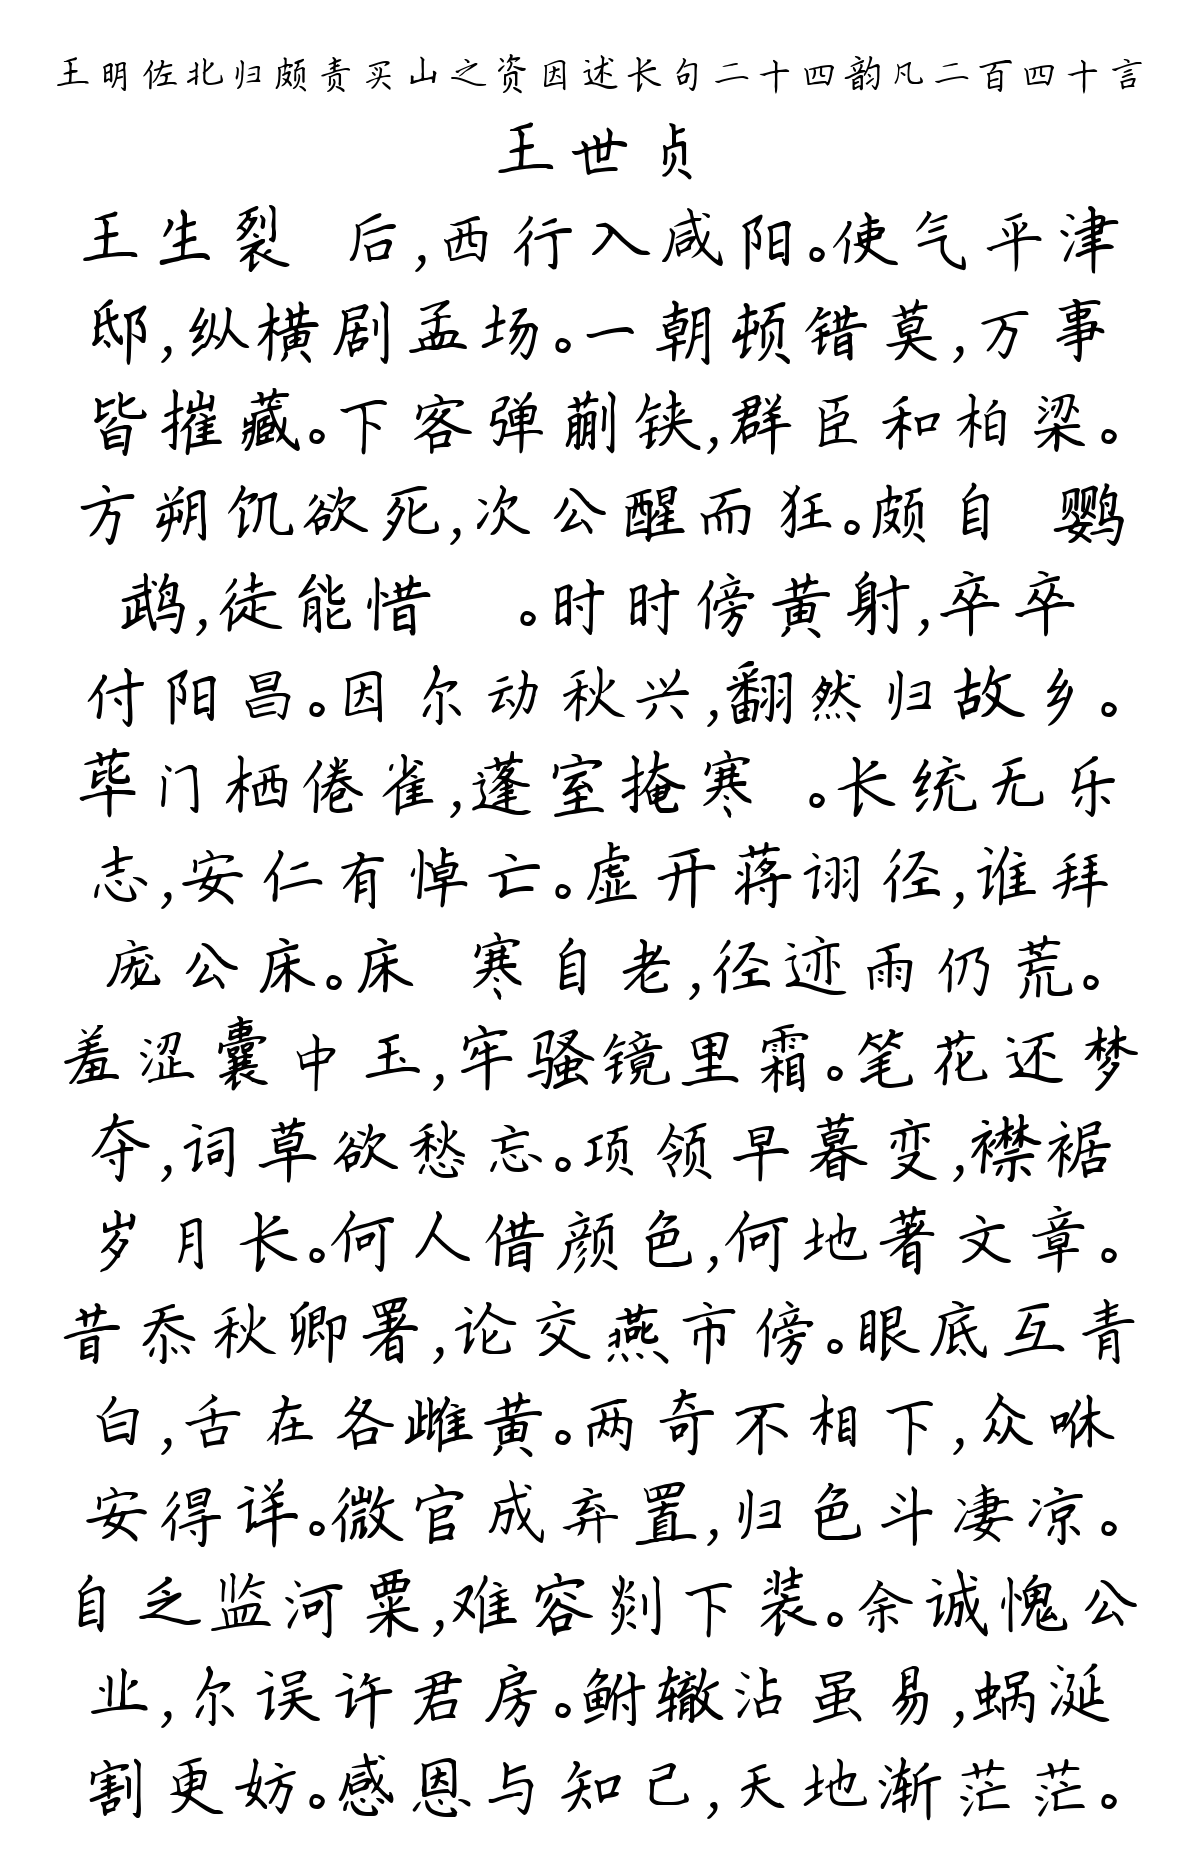 王明佐北归颇责买山之资因述长句二十四韵凡二百四十言
王世贞
王生裂 后,西行入咸阳。使气平津
邸,纵横剧孟场。一朝顿错莫,万事
皆摧藏。下客弹蒯铗,群臣和柏梁。
方朔饥欲死,次公醒而狂。颇自 鹦
鹉,徒能惜 。时时傍黄射,卒卒
付阳昌。因尔动秋兴,翻然归故乡。
荜门栖倦雀,蓬室掩寒 。长统无乐
志,安仁有悼亡。虚开蒋诩径,谁拜
庞公床。床 寒自老,径迹雨仍荒。
羞涩囊中玉,牢骚镜里霜。笔花还梦
夺,词草欲愁忘。项领早暮变,襟裾
岁月长。何人借颜色,何地著文章。
昔忝秋卿署,论交燕市傍。眼底互青
白,舌在各雌黄。两奇不相下,众咻
安得详。微官成弃置,归色斗凄凉。
自乏监河粟,难容剡下装。余诚愧公
业,尔误许君房。鲋辙沾虽易,蜗涎
割更妨。感恩与知己,天地渐茫茫。